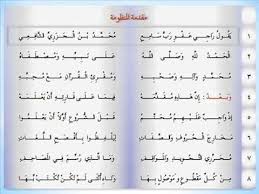 مقدمة المنظومة
١ يَقُولُ رَاجِي عَفْوِ رَبٍّ سَامِعِ مُحَمَّدُ بْنُ الْجَزَرِيِّ الشَّافِعِي
٢ الْحَمْدُ لِلَّهِ وَصَلَّى اللَّهُ عَلَى نَبِيِّهِ وَمُصْطَفَاهُ
٣ مُحَمَّدٍ وَآلِهِ وَصَحْبِهِ وَمُقْرِئِ الْقُرْآنِ مَعْ مُحِبِّهِ
٤ وَبَعْدُ: إِنَّ هَذِهِ مُقَدِّمَهْ فِيمَا عَلَى قَارِئِهِ أَنْ يَعْلَمَهْ
٥ إِذْ وَاجِبٌ عَلَيْهِمُ مُحَتَّمُ قَبْلَ الشُّرُوعِ أَوَّلًا أَنْ يَعْلَمُوا
٦ مَخَارِجَ الْحُرُوفِ وَالصِّفَاتِ لِيَلْفِظُوا بِأَفْصَحِ اللُّغَاتِ
٧ مُحَرِّرِي التَّجْوِيدِ وَالْمَوَاقِفِ وَمَا الَّذِي رُسِمَ فِي الْمَصَاحِفِ
٨ مِنْ كُلِّ مَقْطُوعٍ وَمَوْصُولٍ بِهَا وَتَاءِ أُنْثَى لَمْ تَكُنْ تُكْتَبْ بِهَا